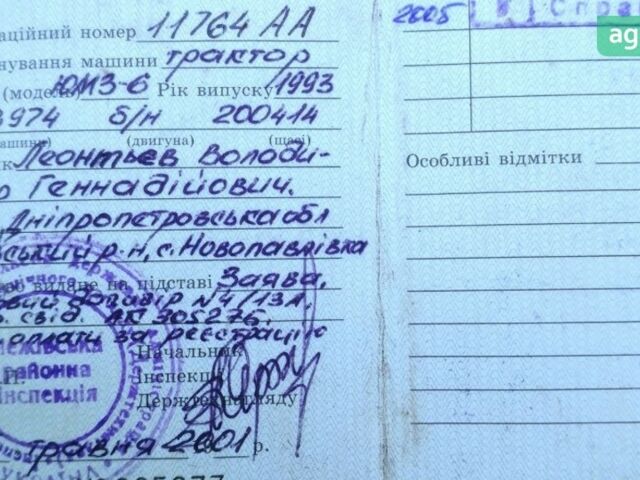 аційний номер 11764 АА
нування машини трактор
(модель) ЮМЗ-6 Рік випуску 1993
3974 б/н 200414
ашини) (двигуна) (шасі)
Леонтьєв Володи-
Геннадійович.
Дніпропетровська обл
ський р-н, с. Новопавлівка
видане на підставі Заява,
договір N4/13А
свід. АК 305276.
оплати за реєстрацію
Начальник
Інспекції
Держтехнагляду
МЕЖІВСЬКА
районна
інспекція
травня 2001 р.
2005
Спра
ag
Особливі відмітки